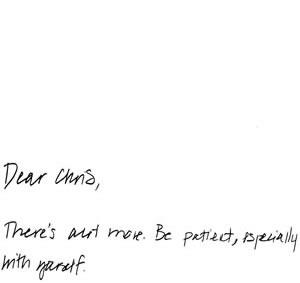 Dear Chris,
There's more. Be patient, especially
with yourself.